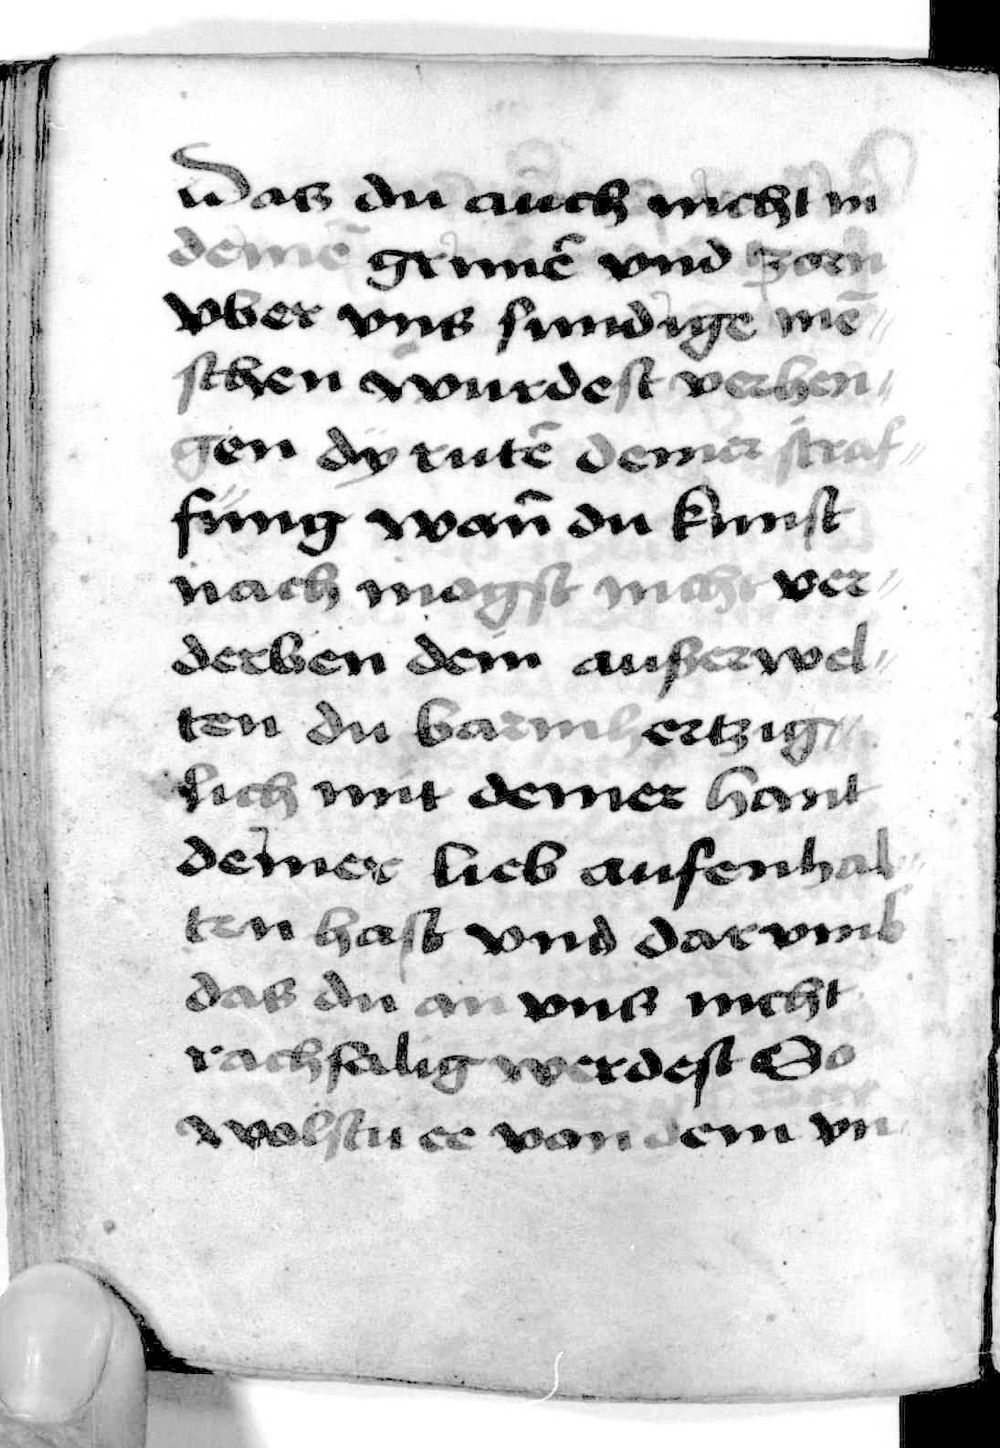 Das du auch nicht in
deinē grimē vnd zorn
vber vns sundige mē⸗
schen wurdest verhen⸗
gen dy rutē deiner straf⸗
fung wan̄ du kunst
nach mogst nicht ver⸗
derben dein außerwel⸗
ten du barmhertzig⸗
lich mit deiner hant
deiner lieb aufenhal⸗
ten hast vnd darvmb
das du an vns nicht
rachsalig werdest So
wolstu ee von dem vn